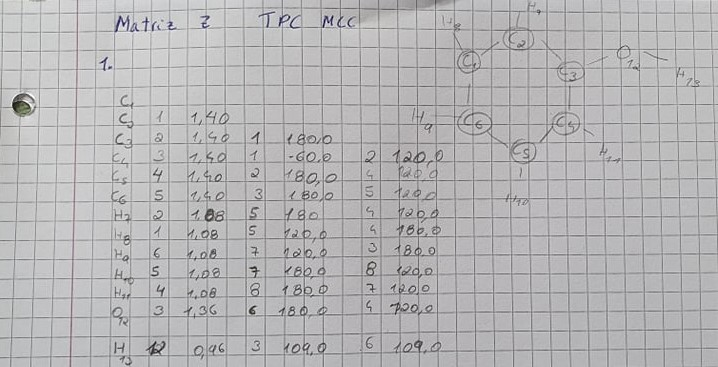 Matriz Z TPC MCC
1.
C1
C2 1 1,40
C3 2 1,40 1 180,0
C4 3 1,40 1 -60,0 2 120,0
C5 4 1,40 2 180,0 4 120,0
C6 5 1,40 3 180,0 5 120,0
H7 2 1,08 5 180 4 120,0
H8 1 1,08 5 120,0 4 180,0
H9 6 1,08 7 120,0 3 180,0
H10 5 1,08 7 180,0 8 120,0
H11 4 1,08 8 180,0 7 120,0
O12 3 1,36 6 180,0 4 120,0
H13 12 0,96 3 109,0 6 109,0
H8
C2
C1
C3
O12
H13
H9
C6
C4
C5
H11
H10